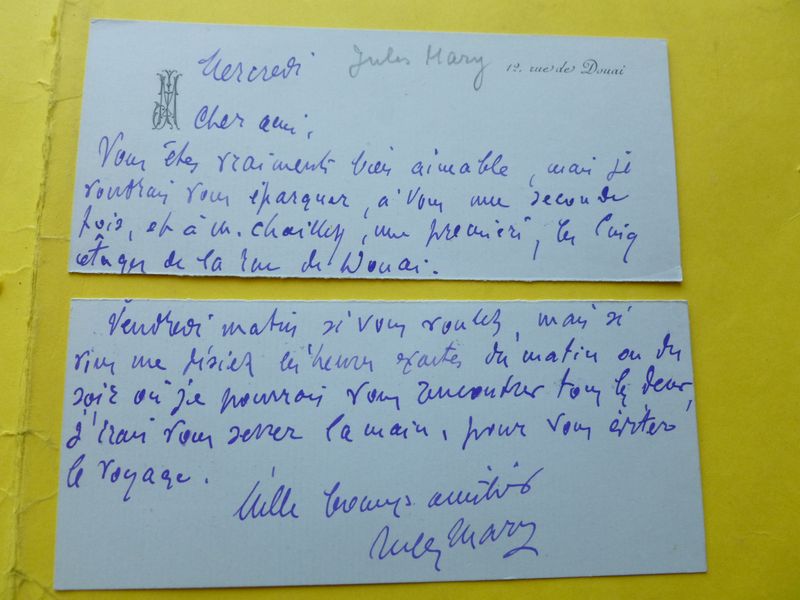 Mercredi Jules Mary 12, rue de Douai
JM
Cher ami,
Vous êtes vraiment bien aimable, mais je
voudrais vous épargner, à vous une seconde
fois, et à M. Chailley, une première, les cinq
étages de la rue de Douai.
Vendredi matin si vous voulez, mais si
vous me disiez les heures exactes du matin ou du
soir où je pourrais vous rencontrer tous les deux,
j'irais vous serrer la main, pour vous éviter
le voyage.
Mille bonnes amitiés
Jules Mary